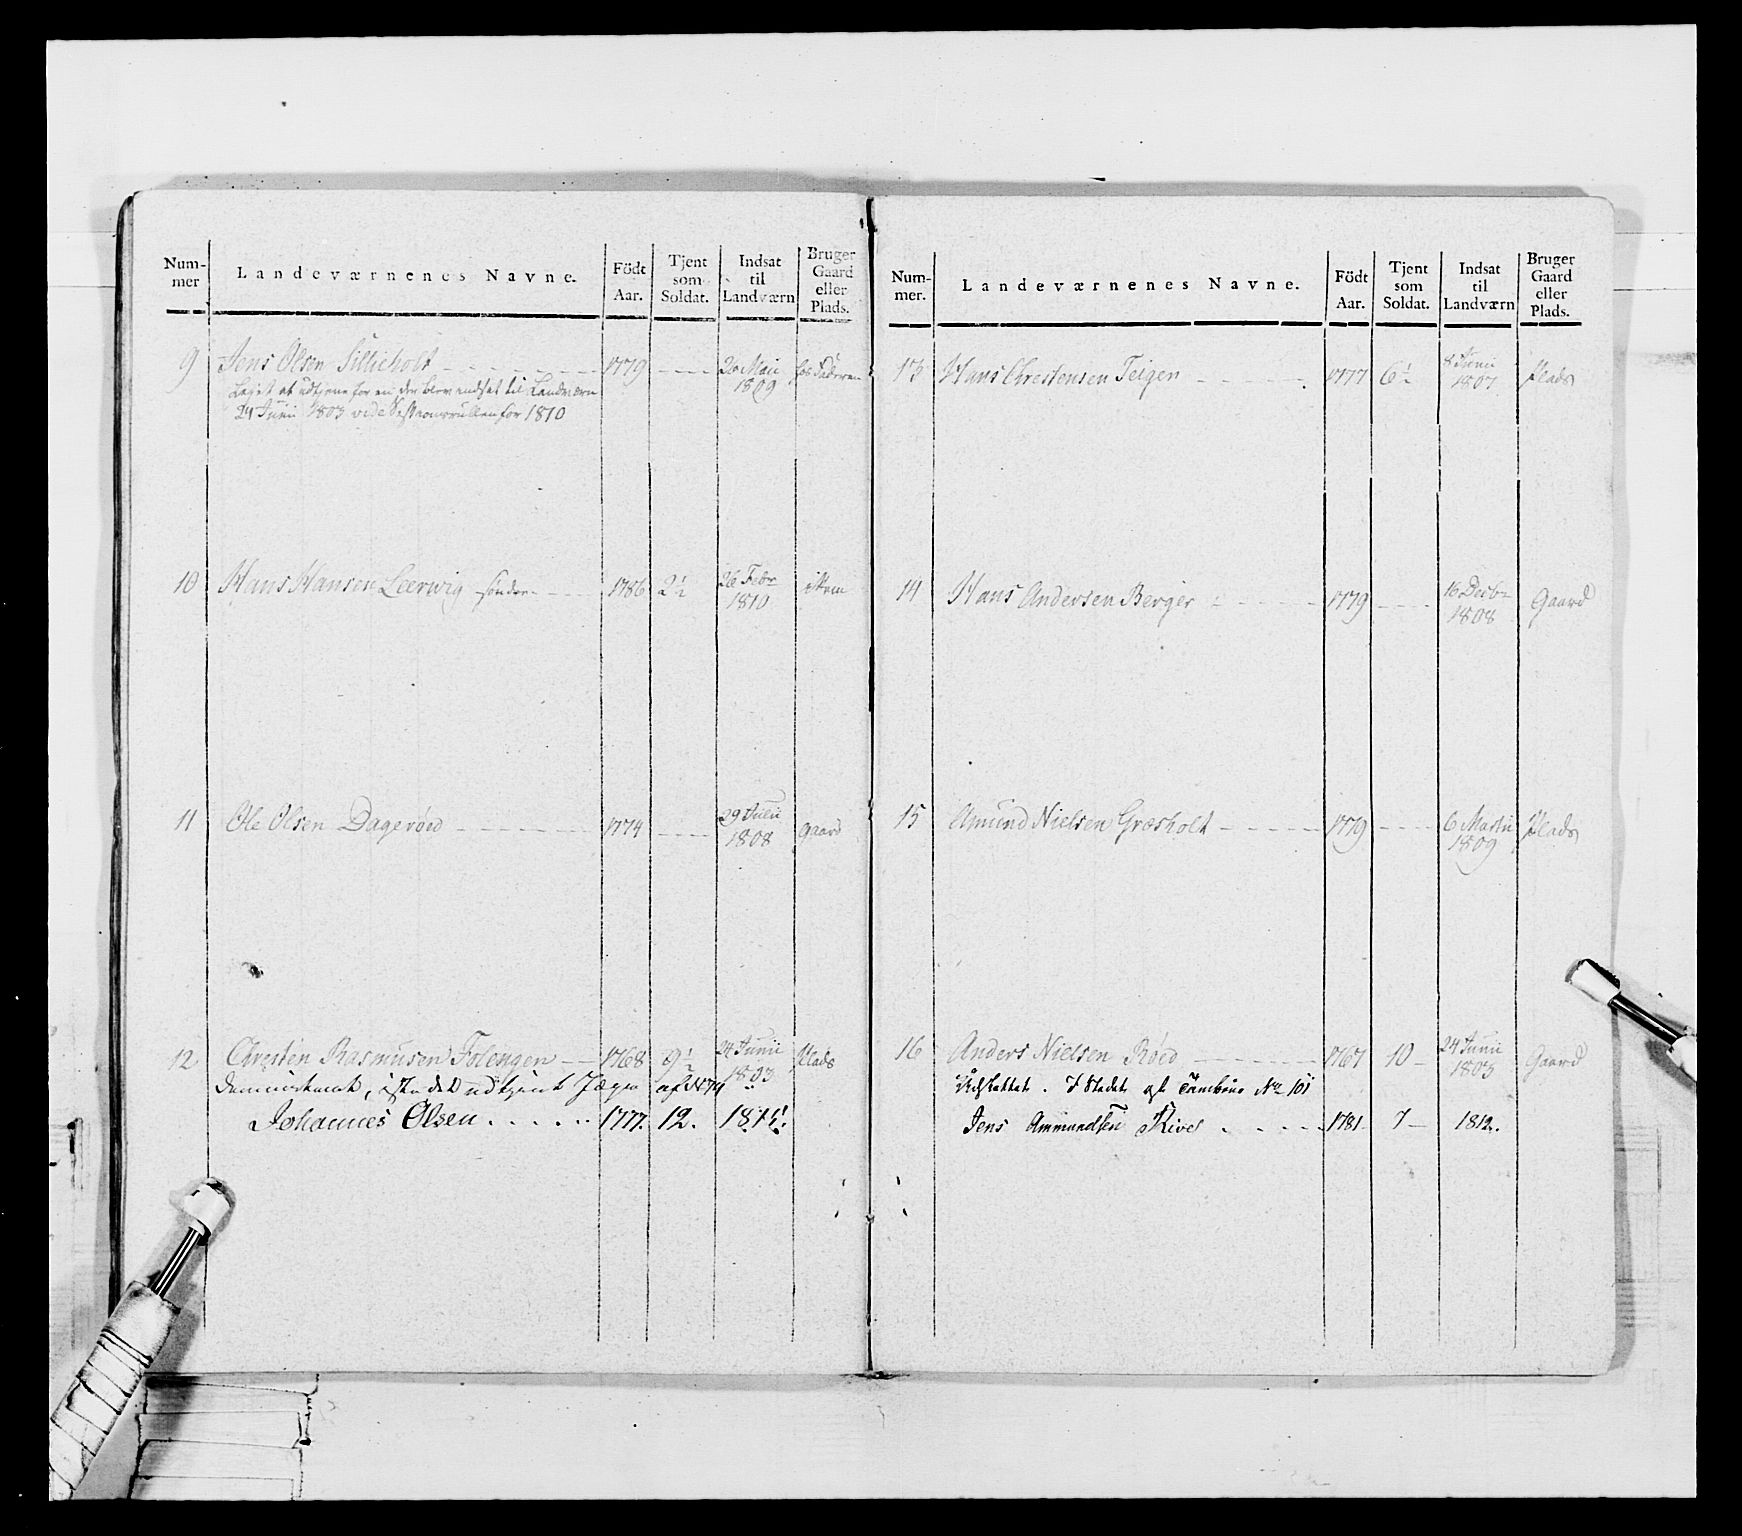 Num-
mer
Landeværnenes Navne.
Födt
Aar.
Tjent
som
Soldat.
Indsat
til
Landværn
Bruger
Gaard
eller
Plads.
9 Jens Olsen Sillieholt 1779 26 Maii
1809 hos Faderen
24 Junii 1803 vide Sessionsrullen for 1810
10 Hans Hansen Leerwig sönder 1786 2½ 26 Febr
1810
11 Ole Olsen Dageröed 1774 29 Julii
1808 Gaard
12 Christen Rasmusen Folengen 1768 9½ 24 Junii
1803 Plads
istædet udtjent Jæger af No 79
Johannes Olsen 1777. 12. 1811.
Num-
mer.
Landeværnenes Navne.
Födt
Aar.
Tjent
som
Soldat.
Indsat
til
Landværn
Bruger
Gaard
eller
Plads.
13 Hans Chrestensen Teigen 1777 6½ 8 Junii
1807 Plads
14 Hans Andersen Berger 1779 16 Decbr
1808 Gaard
15 Amund Nielsen Græsholt 1779 6 Martii
1809 Plads
16 Anders Nielsen Röed 1767 10 24 Junii
1803 Gaard
Udslettet. I Stedet af Tambour No 101
Jens Ammundsen 1781. 7 1812.